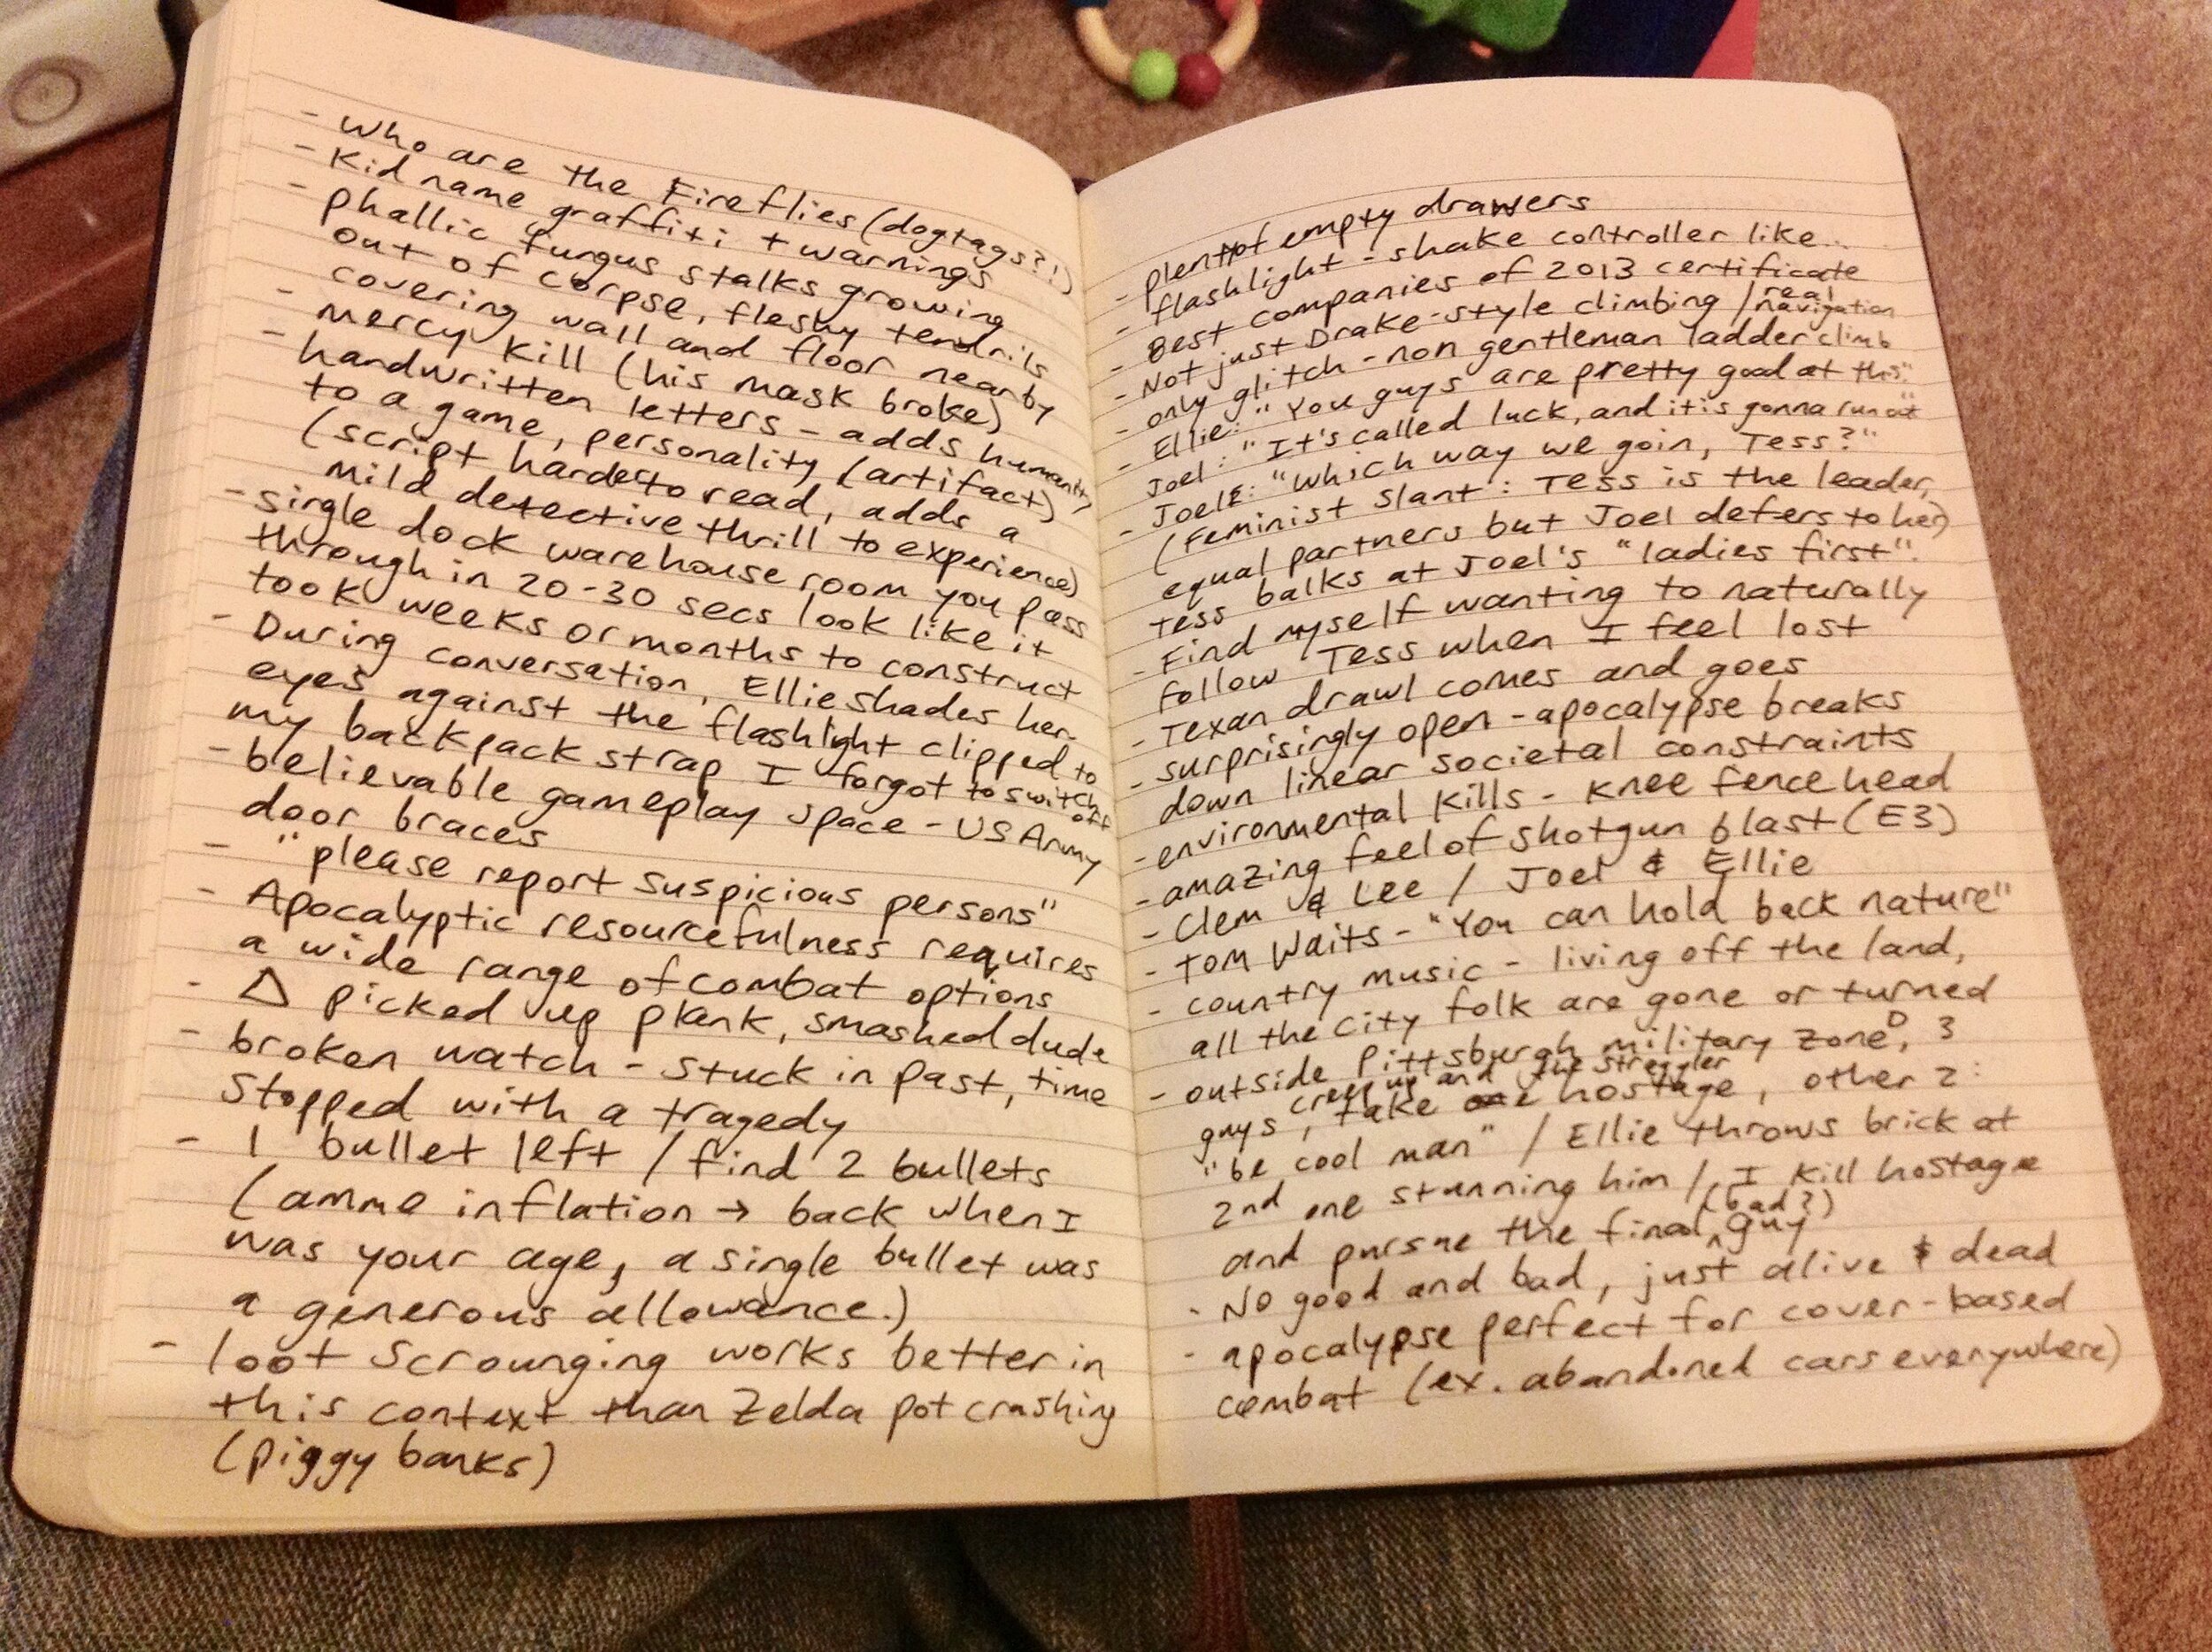 - Who are the Fireflies (dogtags?!)
- Kid name graffiti + warnings
- phallic fungus stalks growing
out of corpse, fleshy tendrils
covering wall and floor nearby
- mercy kill (his mask broke)
- handwritten letters - adds humanity
to a game, personality (artifact)
(script harder to read, adds a
mild detective thrill to experience)
- single dock warehouse room you pass
through in 20-30 secs look like it
took weeks or months to construct
- During conversation, Ellie shades her
eyes against the flashlight clipped to
my backpack strap I forgot to switch off
- believable gameplay space - US Army
door braces
- "please report suspicious persons"
- Apocalyptic resourcefulness requires
a wide range of combat options
- △ picked up plank, smashed dude
- broken watch - stuck in past, time
stopped with a tragedy
- 1 bullet left / find 2 bullets
(ammo inflation → back when I
was your age, a single bullet was
a generous allowance.)
- loot scrounging works better in
this context than Zelda pot crashing
(piggy banks)
- plenty of empty drawers
- flashlight - shake controller like...
- Best companies of 2013 certificate
- Not just Drake-style climbing / real navigation
- only glitch - non gentleman ladder climb
- Ellie: "You guys are pretty good at this."
Joel: "It's called luck, and it is gonna run out"
- Joel: "Which way we goin, Tess?"
(Feminist slant: Tess is the leader,
equal partners but Joel defers to her)
Tess balks at Joel's "ladies first".
- Find myself wanting to naturally
follow Tess when I feel lost
- Texan drawl comes and goes
- surprisingly open - apocalypse breaks
down linear societal constraints
- environmental kills - knee fence head
- amazing feel of shotgun blast (E3)
- Clem & Lee / Joel & Ellie
- Tom Waits - "You can hold back nature"
- country music - living off the land,
all the city folk are gone or turned
- outside Pittsburgh military zone, 3
guys, creep up and take the straggler hostage, other 2:
"be cool man" / Ellie throws brick at
2nd one stunning him / I kill hostage
and pursue the final (bad?) guy
- No good and bad, just alive & dead
- apocalypse perfect for cover-based
combat (ex. abandoned cars everywhere)